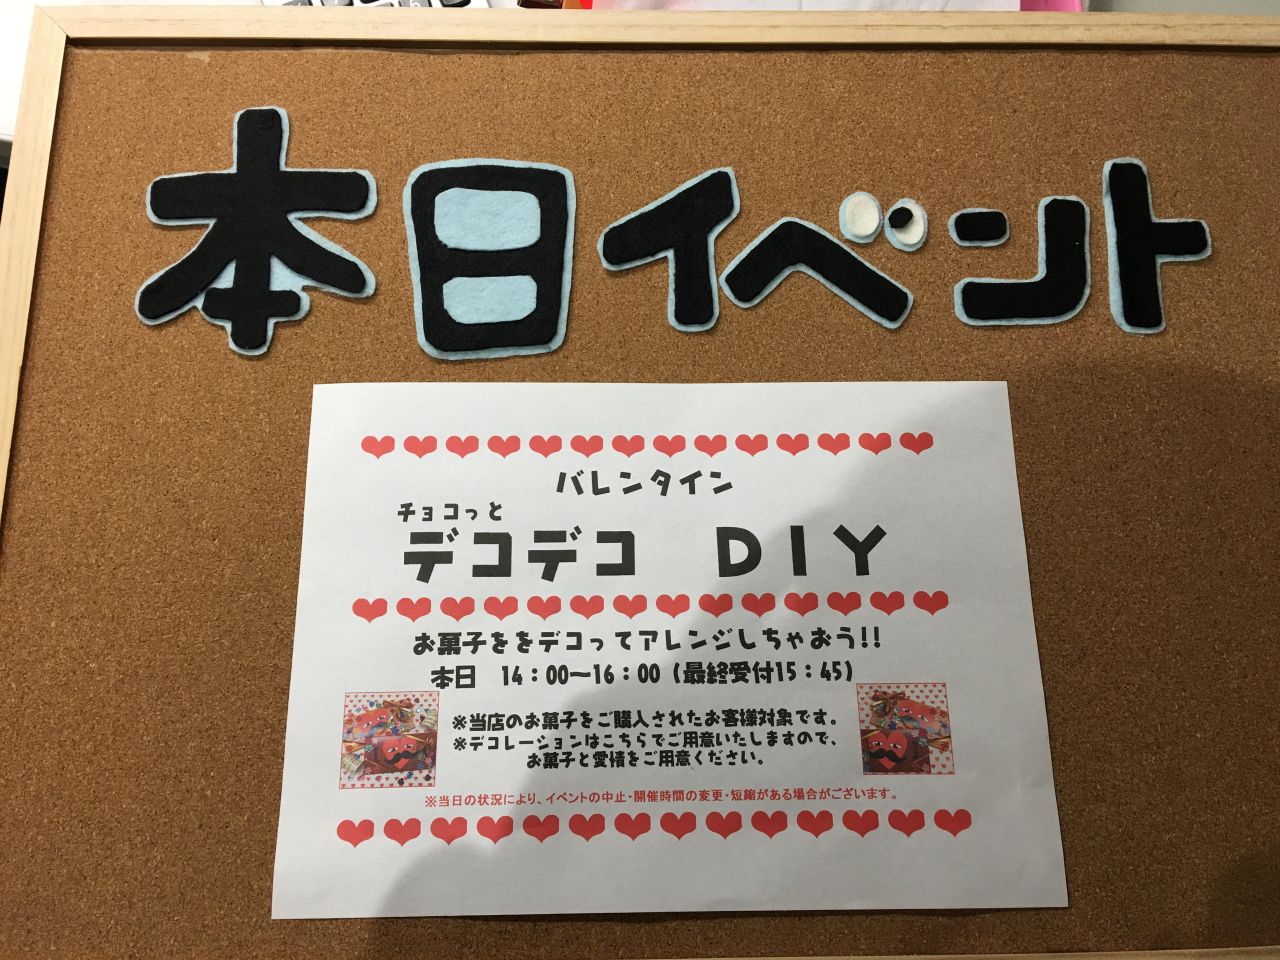 本日イベント
バレンタイン
チョコっと
デコデコ DIY
お菓子ををデコってアレンジしちゃおう!!
本日 14：00～16：00（最終受付15：45）
※当店のお菓子をご購入されたお客様対象です。
※デコレーションはこちらでご用意いたしますので、
お菓子と愛情をご用意ください。
※当日の状況により、イベントの中止・開催時間の変更・短縮がある場合がございます。